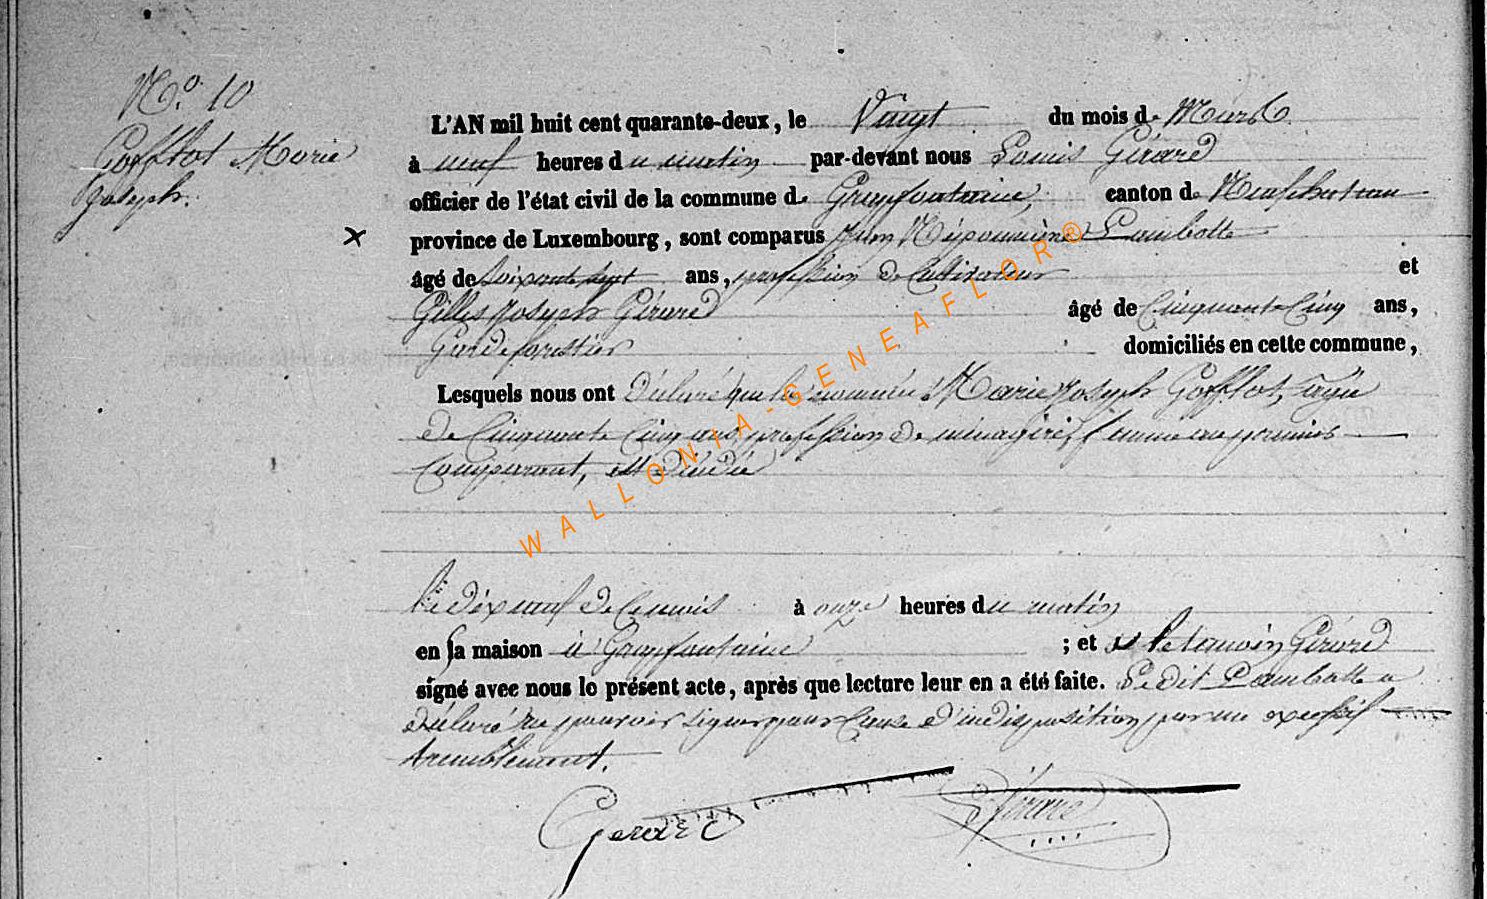 N.º 10
Gofflot Marie
Joseph.
L'AN mil huit cent quarante-deux, le Vingt du mois de Mars
à neuf heures du matin par-devant nous Louis Gérard
officier de l'état civil de la commune de Grapfontaine, canton de Neufchateau
province de Luxembourg, sont comparus Jean Népomucène Lambotte
âgé de soixante sept ans, profession de Cultivateur et
Gilles Joseph Gérard âgé de Cinquante Cinq ans,
Garde forestier domiciliés en cette commune,
Lesquels nous ont déclaré que la nommée Marie Joseph Gofflot, agée
de Cinquante Cinq ans, profession de ménagère, femme au premier
Comparant, est décédée
le dix neuf de ce mois à onze heures du matin
en sa maison à Grapfontaine ; et a le temoin Gérard
signé avec nous le présent acte, après que lecture leur en a été faite. Le dit Lambotte a
déclaré ne pouvoir signer pour Cause d'indisposition par un excessif
tremblement.
Gerard L Gérard
WALLONIA-GENEAFLOR®